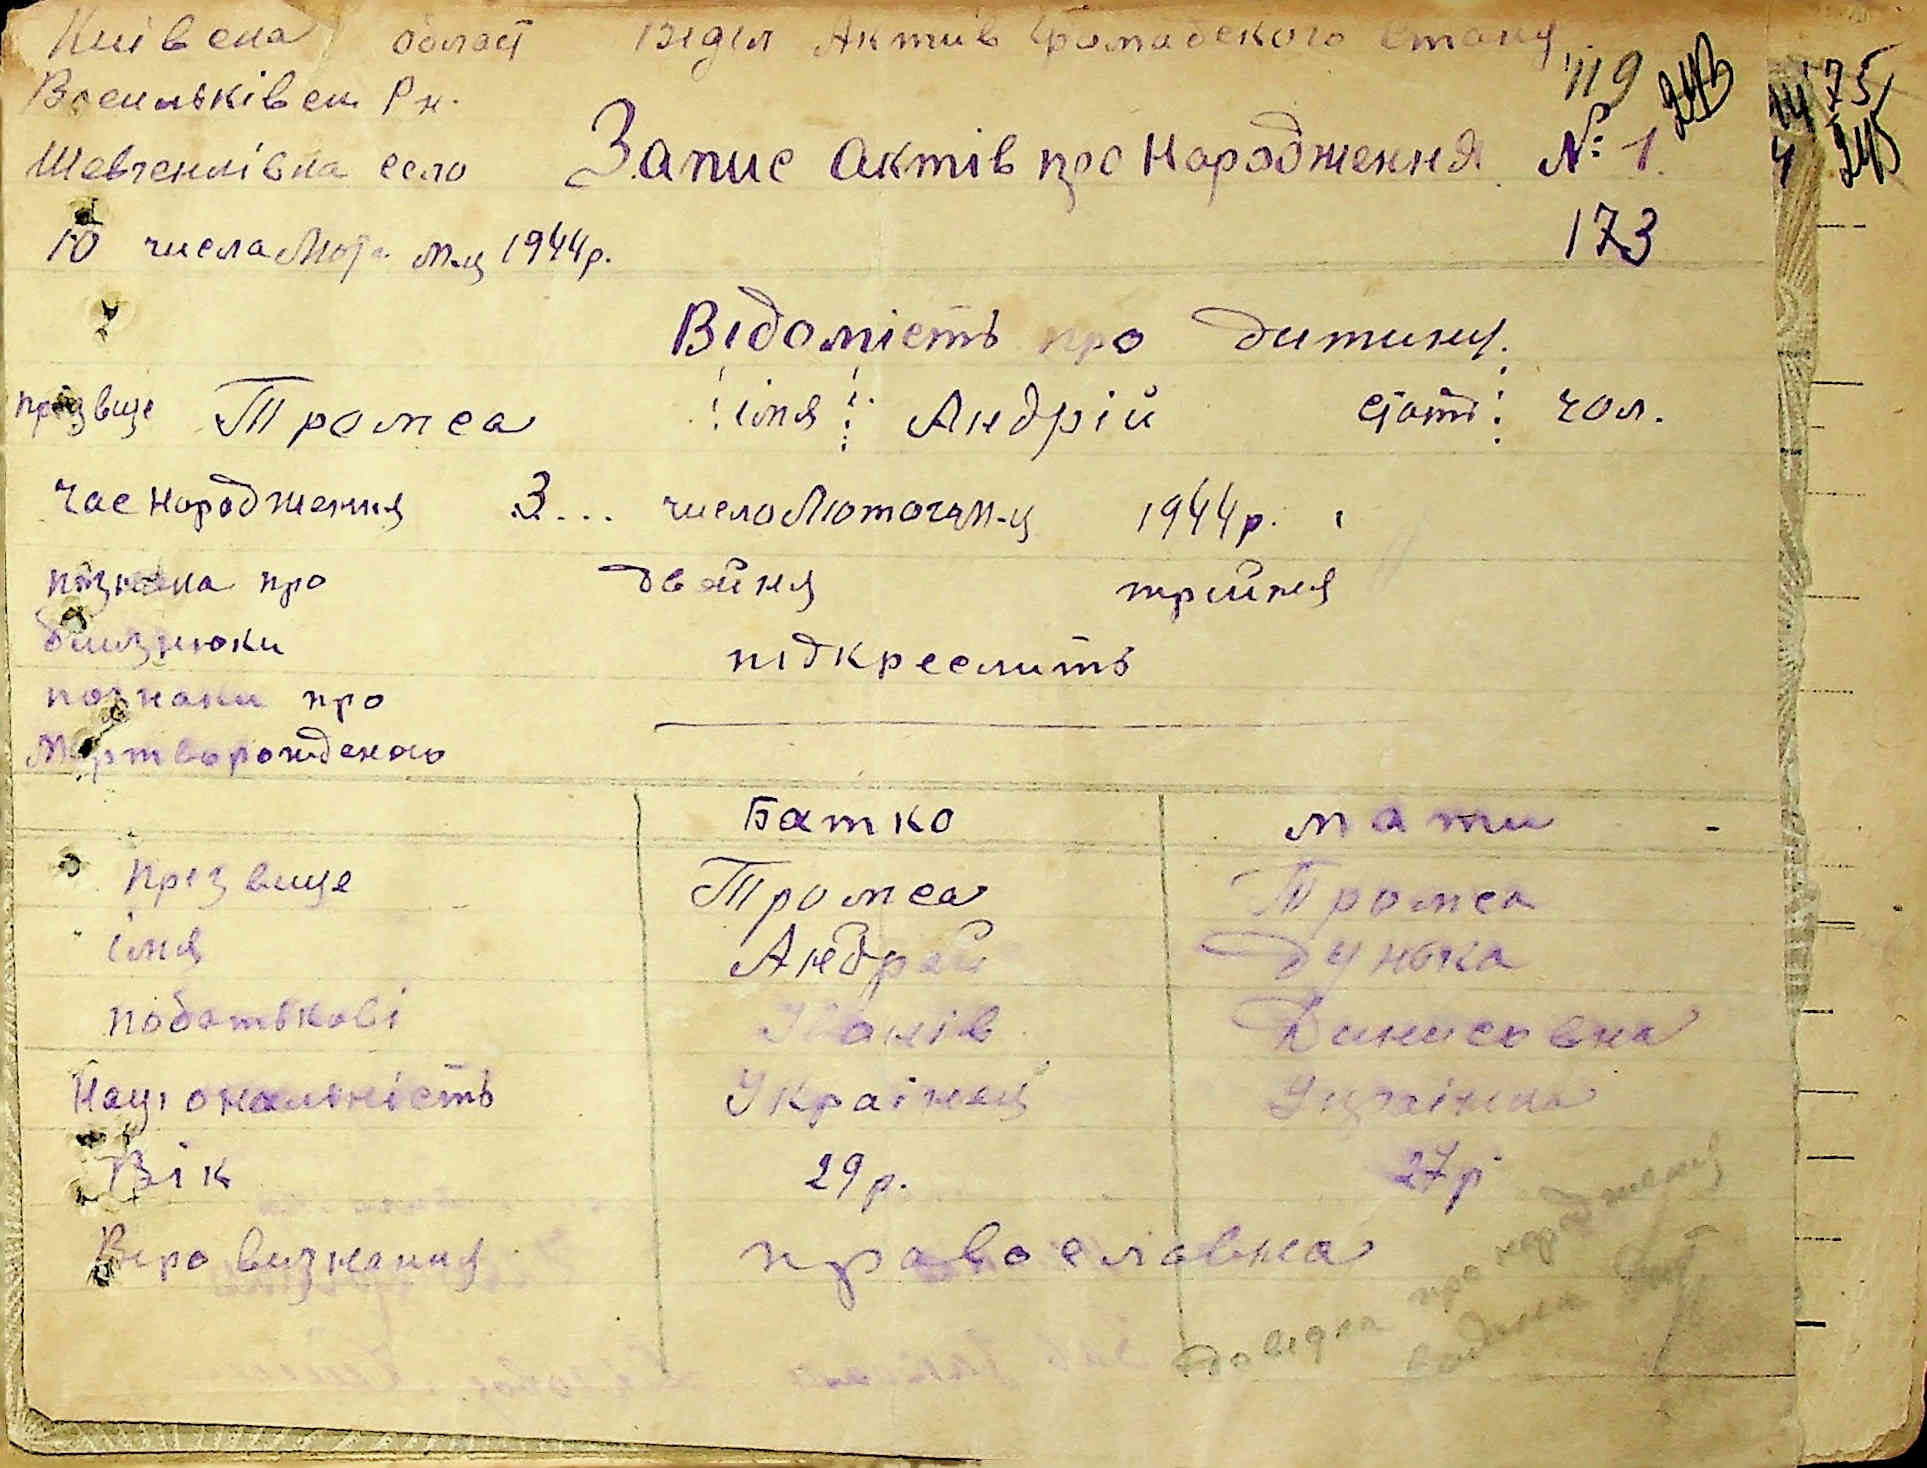 Київска област Відділ Актив Громадского Стану
Васильківск Рн. 119 243
Шевченківка село Запис актів про народження № 1.
10 числа Лют. м-ц 1944р. 173
Відомість про дитину.
прізвище Тромса імя: Андрій стать: чол.
Час народження 3... число Лютого м-ц 1944р.
пізнака про двойня трийня
близнюки підкреслить
познаки про
Мертворожденого
Батко мати
Прізвище Тромса Тромса
імя Андрей Дунька
побатькові Іванів Динисовна
Національність Українец Українка
Вік 29р. 27р
Віро визнання православна
довідка про народження
видана
175
14
4 245